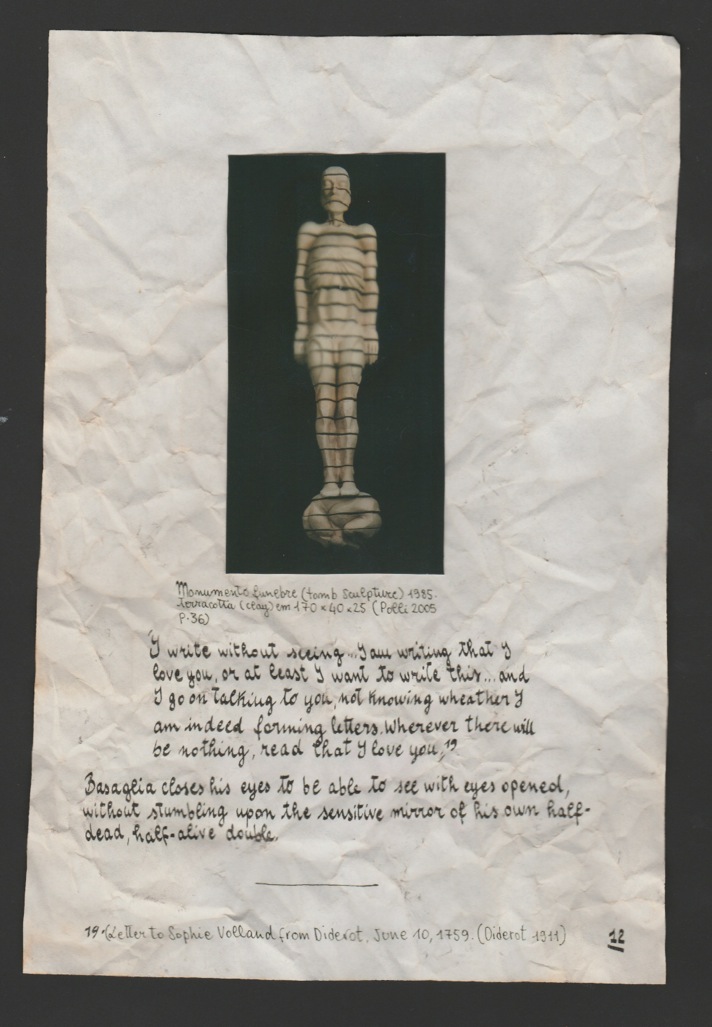 Monumento funebre (tomb sculpture) 1985.
terracotta (clay) cm 170 x 40 x 25 (Polli 2005
P.36)
I write without seeing... I am writing that I
love you, or at least I want to write this... and
I go on talking to you, not knowing wheather I
am indeed forming letters. Wherever there will
be nothing, read that I love you,¹⁹
Basaglia closes his eyes to be able to see with eyes opened,
without stumbling upon the sensitive mirror of his own half-
dead, half-alive double.
19. (Letter to Sophie Volland from Diderot, June 10, 1759. (Diderot 1911)
12